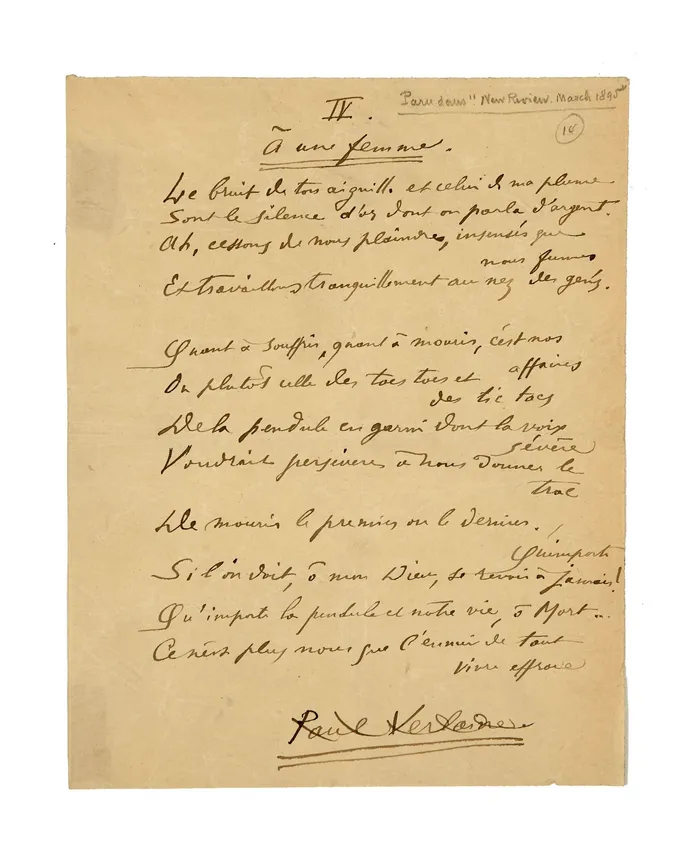 Paru dans "New Review. March 1895
14
IV.
À une femme.
Le bruit de ton aiguill. et celui de ma plume
Sont le silence d'or dont on parla d'argent.
Ah, cessons de nous plaindre, insensés que
nous fumes
Et travaillons tranquillement au nez des gens.
Quant à souffrir, quant à mourir, c'est nos
affaires
Ou plutôt celle des tocs tocs et
des tic tacs
De la pendule en garni dont la voix
sévère
Voudrait persévérer à nous donner le
trac
De mourir le premier ou le dernier.
Qu'importe
Si l'on doit, ô mon Dieu, se revoir à jamais!
Qu'importe la pendule et notre vie, ô Mort..
Ce n'est plus nous que l'ennui de tant
vivre effraie
Paul Verlaine